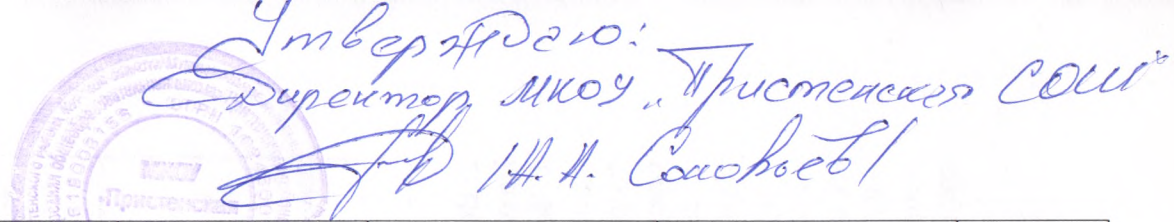 Утверждаю:
Директор МКОУ „Пристенская СОШ"
/А.А. Соловьёв/
МКОУ
«Пристенская